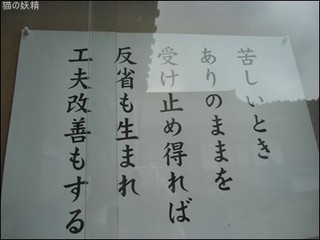 猫の妖精
苦しいとき
ありのままを
受け止め得れば
反省も生まれ
工夫改善もする